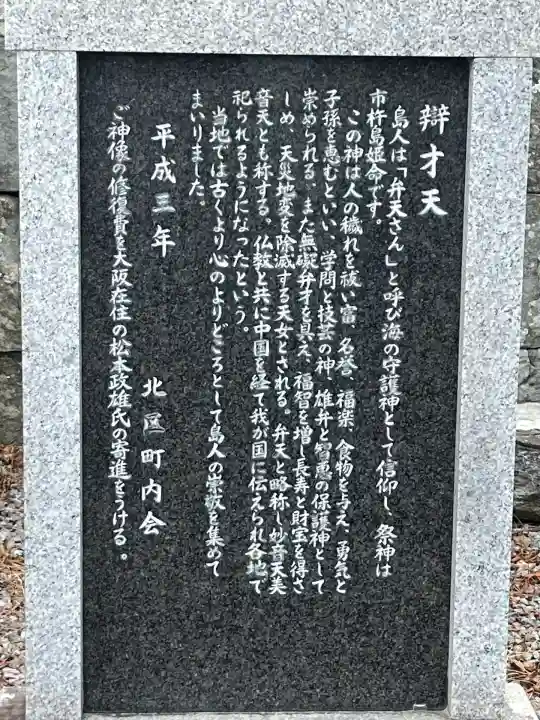 辯才天
島人は「弁天さん」と呼び海の守護神として信仰し、祭神は
市杵島姫命です。
この神は人の穢れを祓い富、名誉、福楽、食物を与え、勇気と
子孫を恵むといい、学問と技芸の神、雄弁と智恵の保護神として
崇められる、また無礙弁才を具え、福智を増し長寿と財宝を得さ
しめ、天災地変を除滅する天女とされる。弁天と略称し妙音天美
音天とも称する。仏教と共に中国を経て我が国に伝えられ各地で
祀られるようになったという。
当地では古くより心のよりどころとして島人の崇敬を集めて
まいりました。
平成三年 北区町内会
ご神像の修復費を大阪在住の松本政雄氏の寄進をうける。